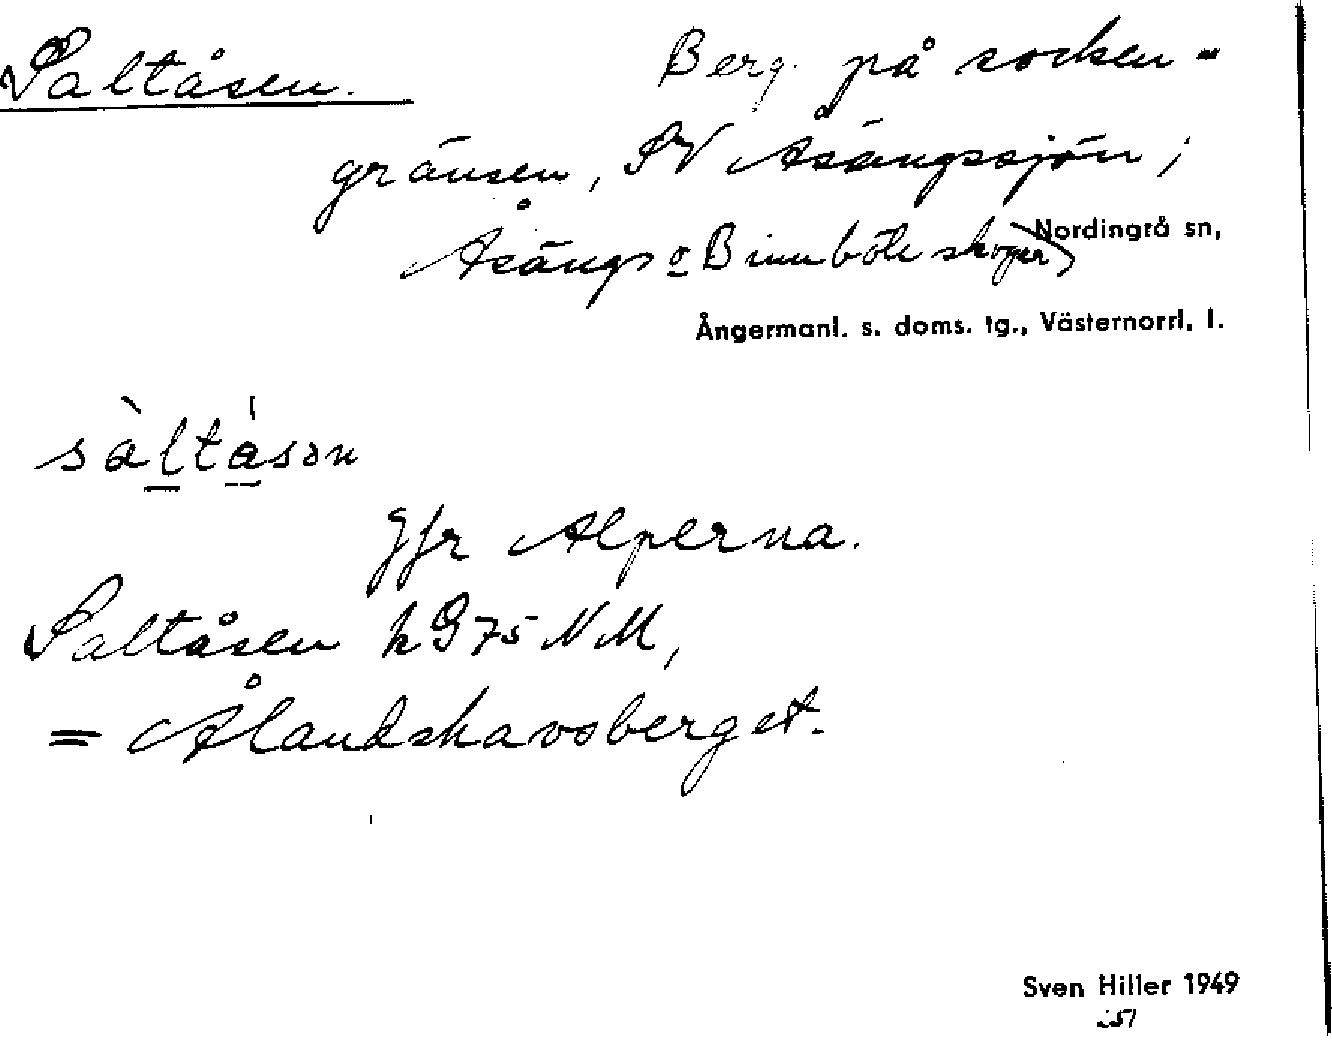 Saltåsen. Berg på socken-
gränsen, SV Åsängssjön;
Åsängs o Binnböle skogar)
Nordingrå sn,
Ångermanl. s. doms. tg., Västernorrl. l.
sàltásən
Jfr Alperna.
Saltåsen h G75 NM,
= Ålandskavsberget.
Sven Hiller 1949